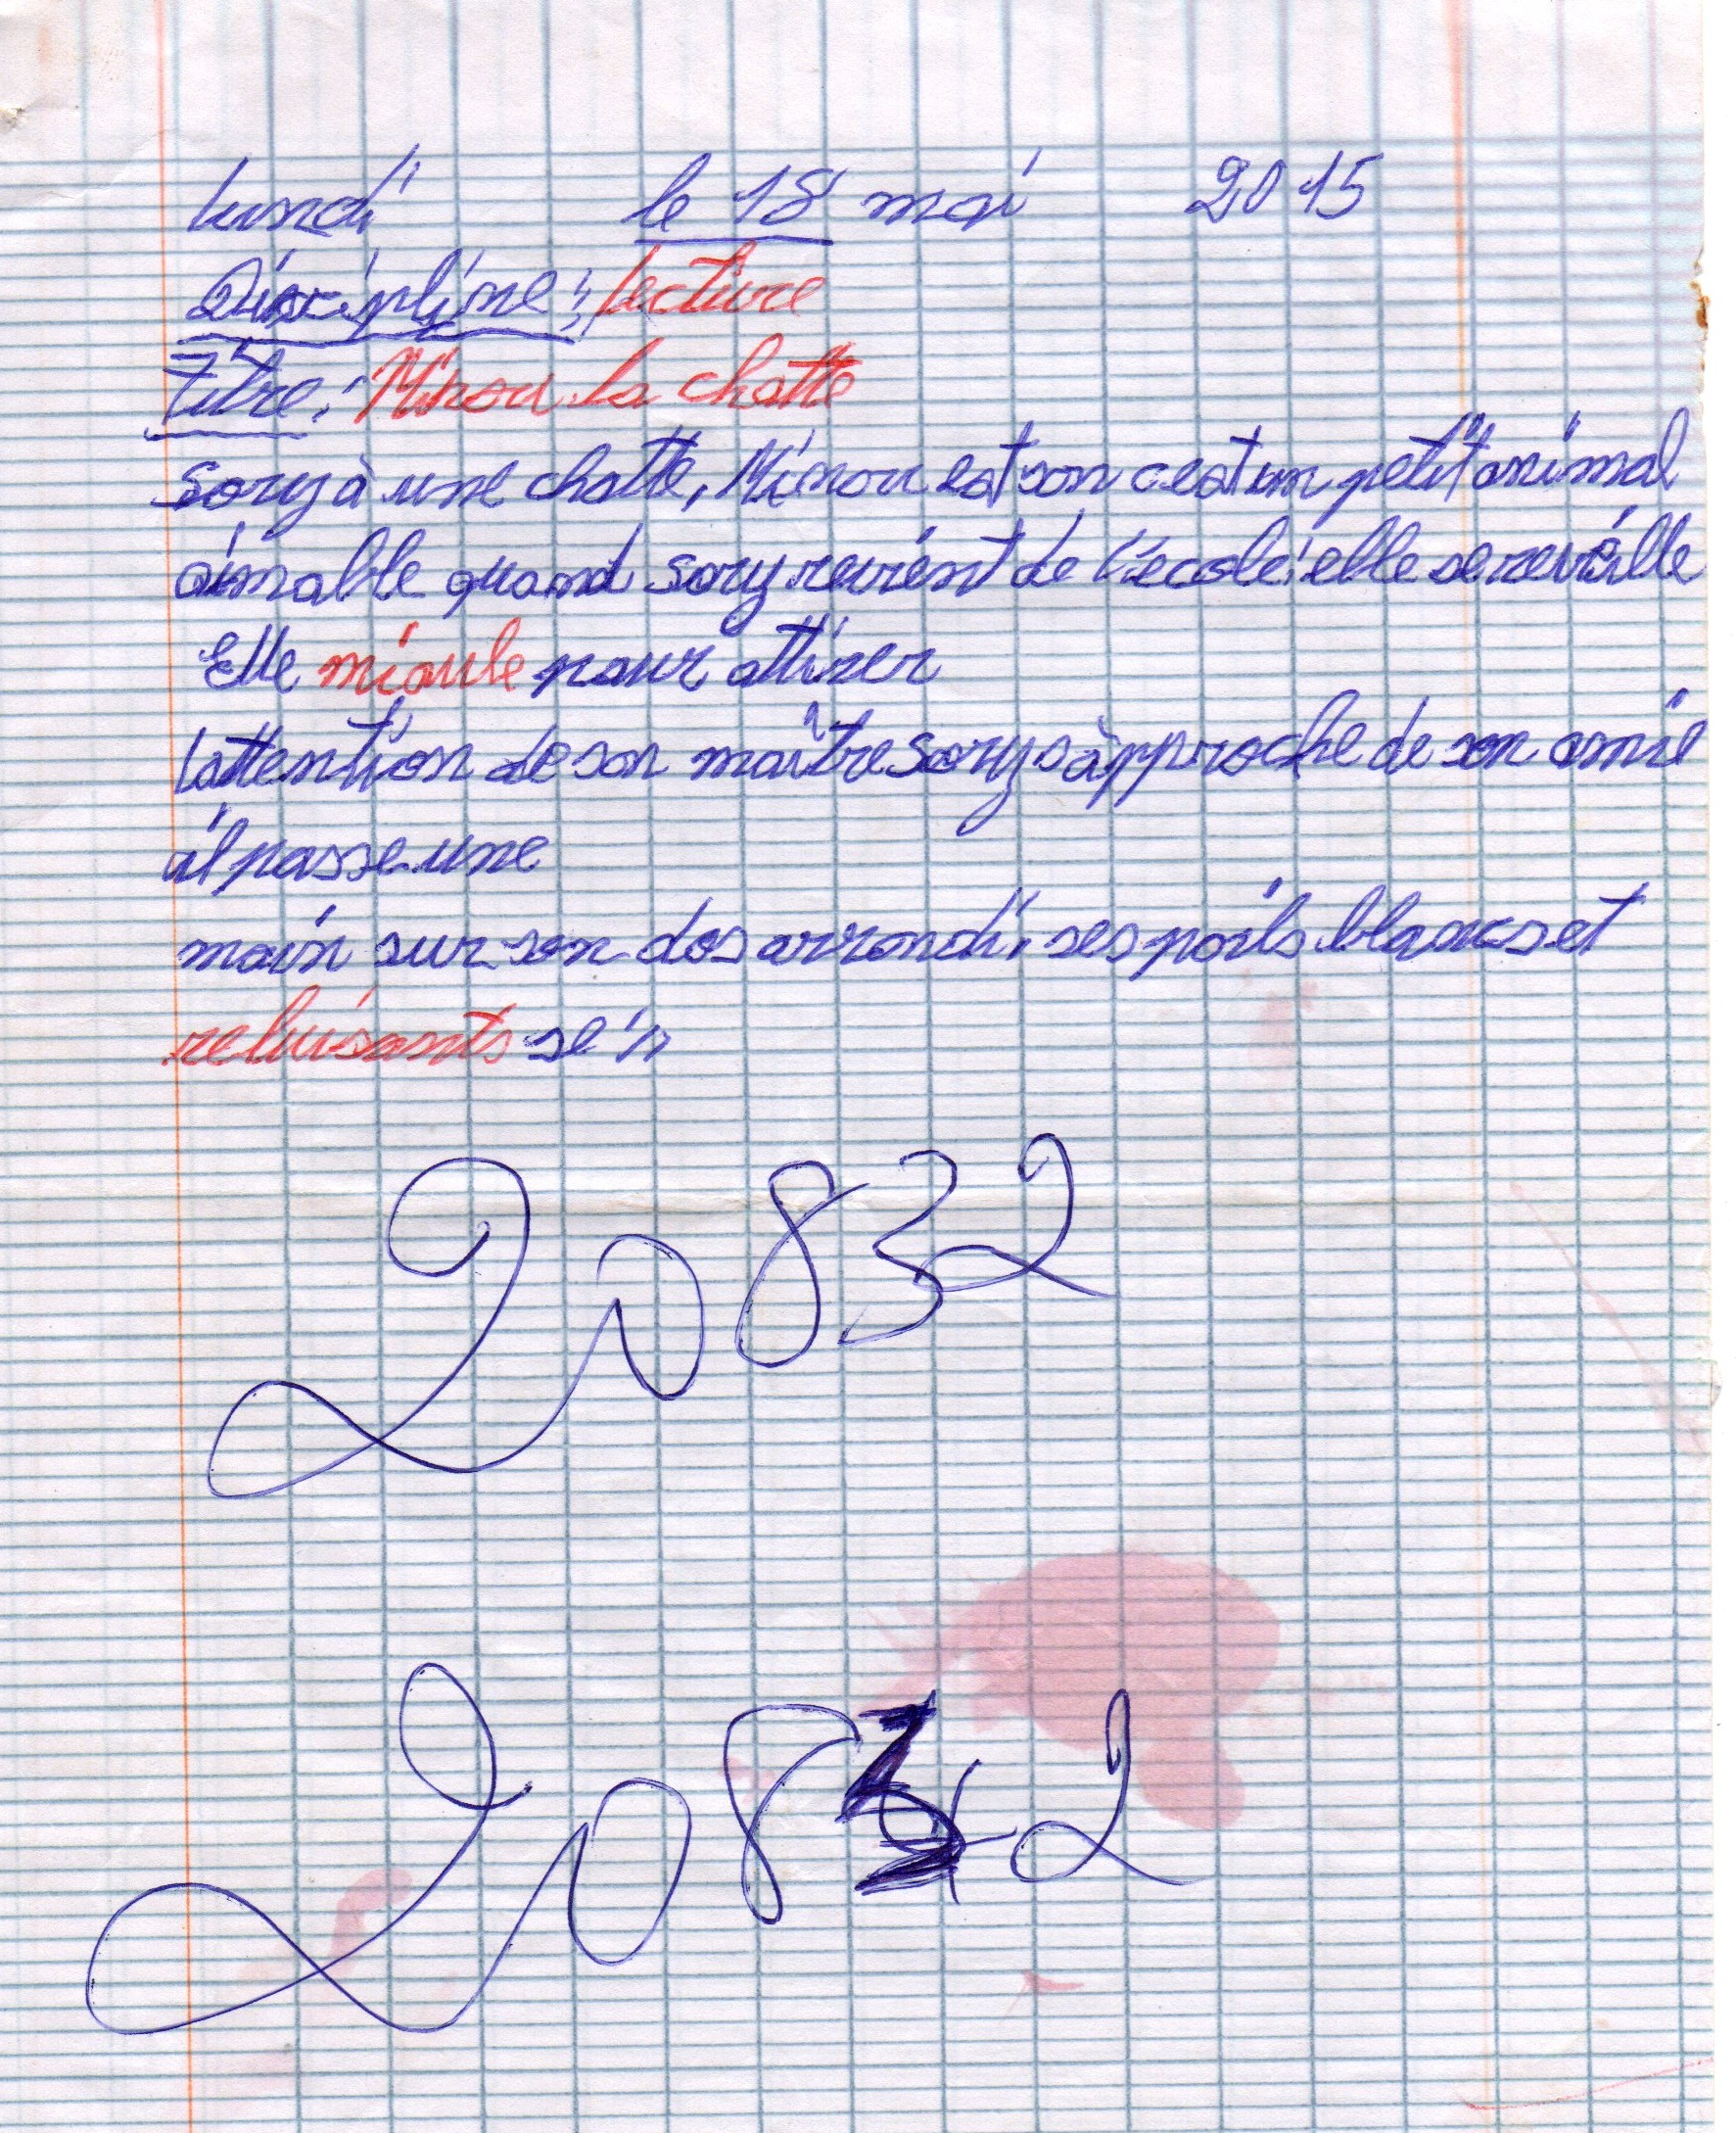 lundi le 18 mai 2015
Discipline: lecture
Titre: Minou la chatte
sory à une chatte, Minou est son c'est un petit animal
aimable quand sory revient de l'ecole elle se reveille
Elle miaule pour attirer
lattention de son maître sory sàpproche de son amie
il passe une
main sur son dos arrondi, ses poils blancs et
reluisants se
20832
2083 2